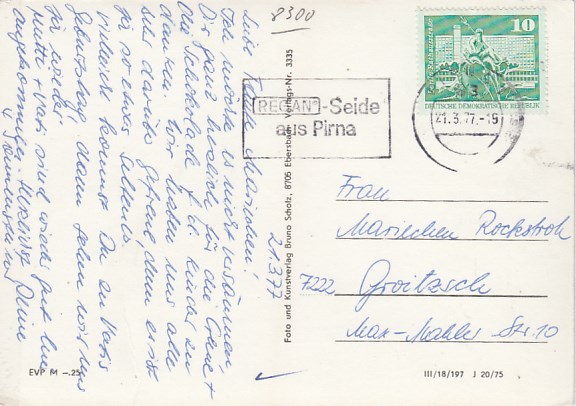 8300
Liebe
Ihr möchte es nicht versäumen,
Dir ganz herzlich für die Creme +
die Schokolade f. d. Kinder zu
danken. Wir haben uns alle
sehr darüber gefreut, denn es ist
ja so etwas Seltenes.
Vielleicht kommst Du an Vatis
Geburtstag, dann sehen wir uns
ja wieder.
Mutti + Vati sind wieder gut
Herzliche
21.3.77
EVP M -.25
Foto und Kunstverlag Bruno Scholz, 8705 Ebersbach Verlags-Nr. 3335
REGAN®-Seide
aus Pirna
21.3.77.-15
10
DEUTSCHE DEMOKRATISCHE REPUBLIK
Frau
Mariechen Rockstroh
7222 Groitzsch
Max-Mahler Str. 10
III/18/197 J 20/75